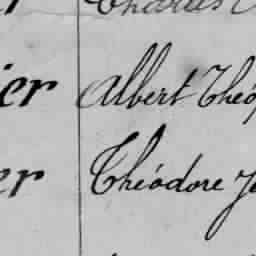 Charles
ier Albert Théo
er Théodore Je